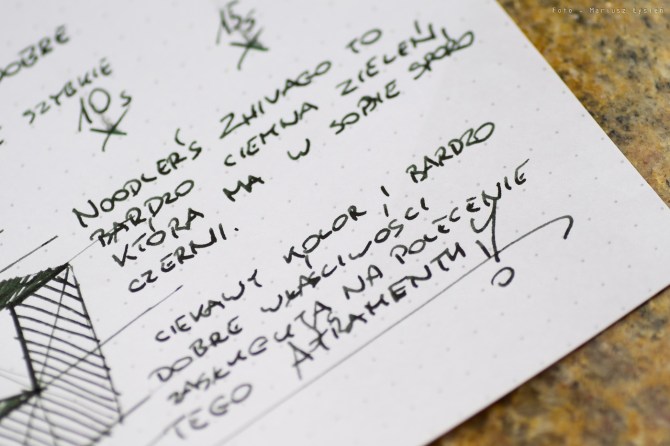 DOBRE
SZYBKIE
10s
15s
NOODLER'S ZHIVAGO TO
BARDZO CIEMNA ZIELEŃ,
KTÓRA MA W SOBIE SPORO
CZERNI.
CIEKAWY KOLOR I BARDZO
DOBRE WŁAŚCIWOŚCI
ZASŁUGUJĄ NA POLECENIE
TEGO ATRAMENTU!
Foto - Mariusz